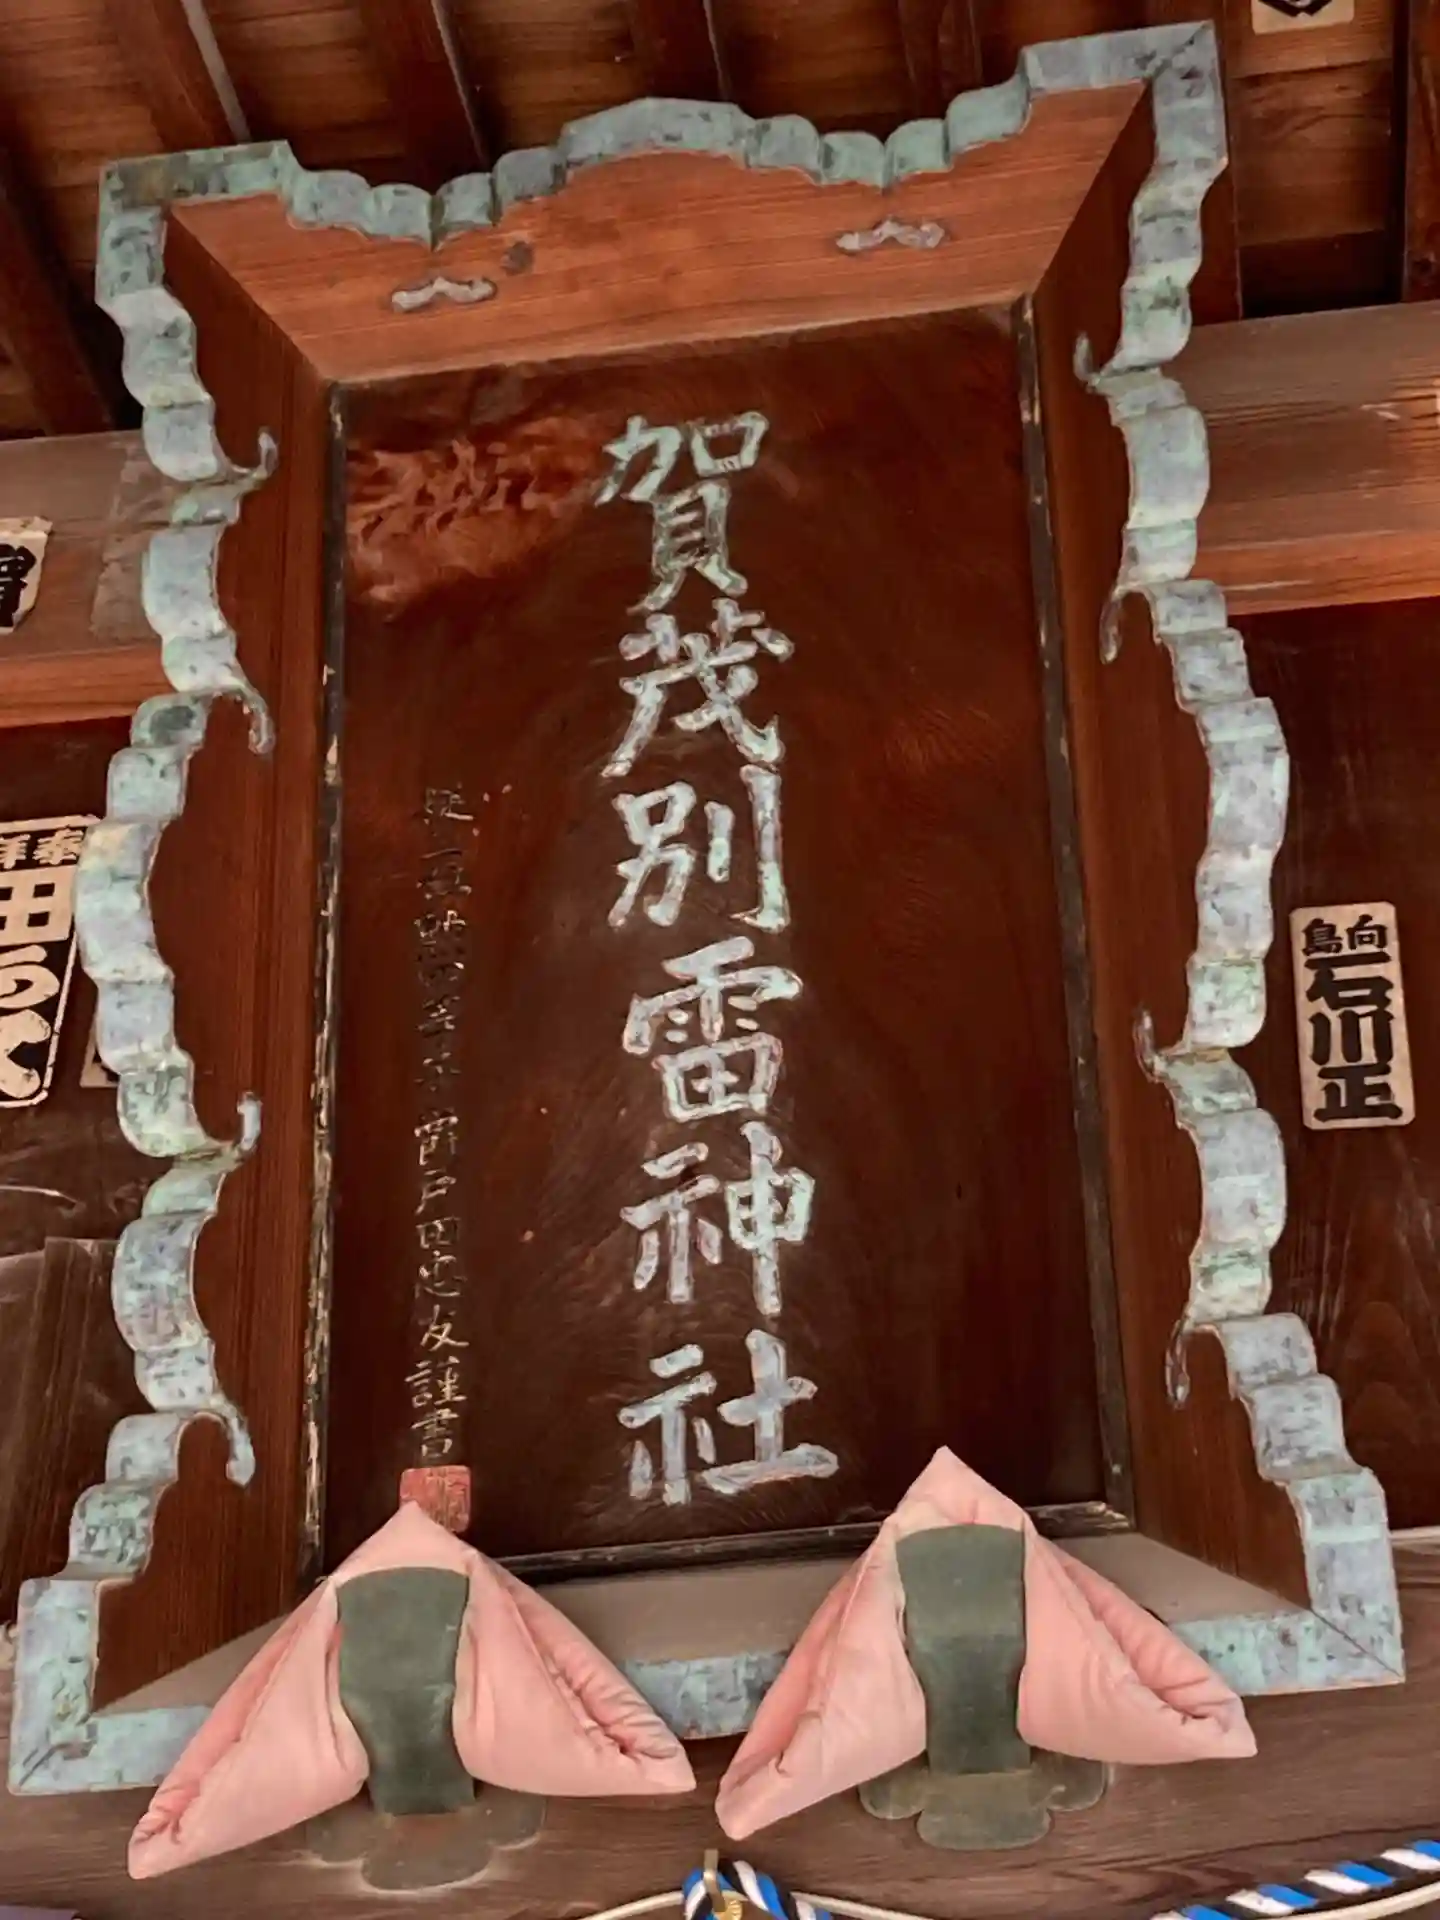 賀茂別雷神社
従二位勲四等子爵戸田忠友謹書
向島
石川正
奉拝